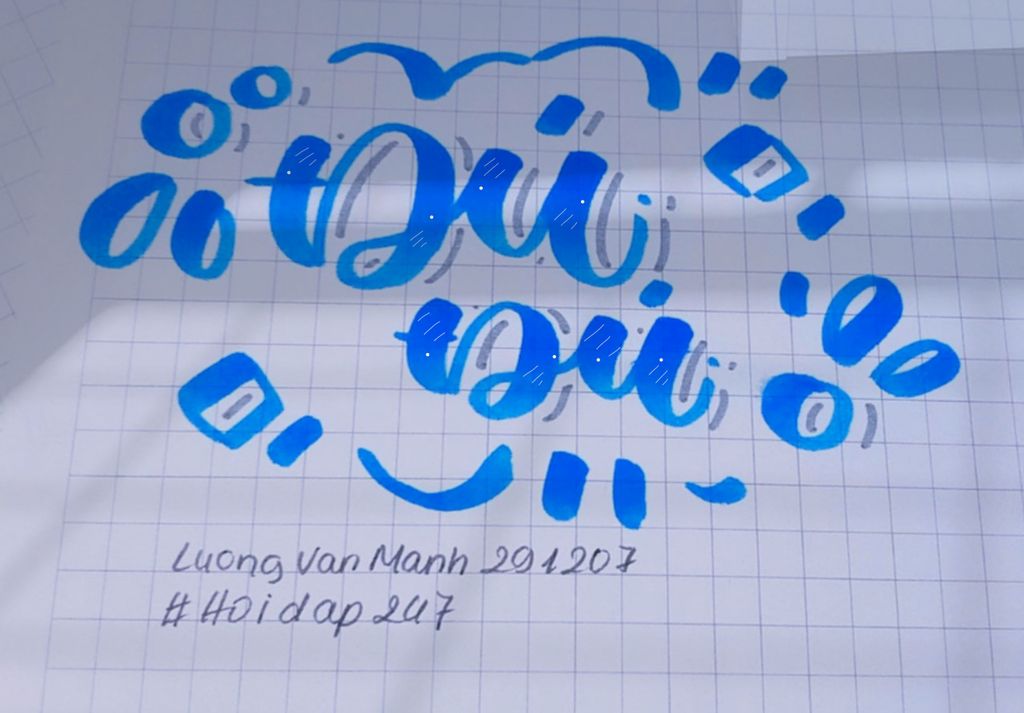 Đứ
Đừ
Luong Van Manh 291207
#Hoidap247